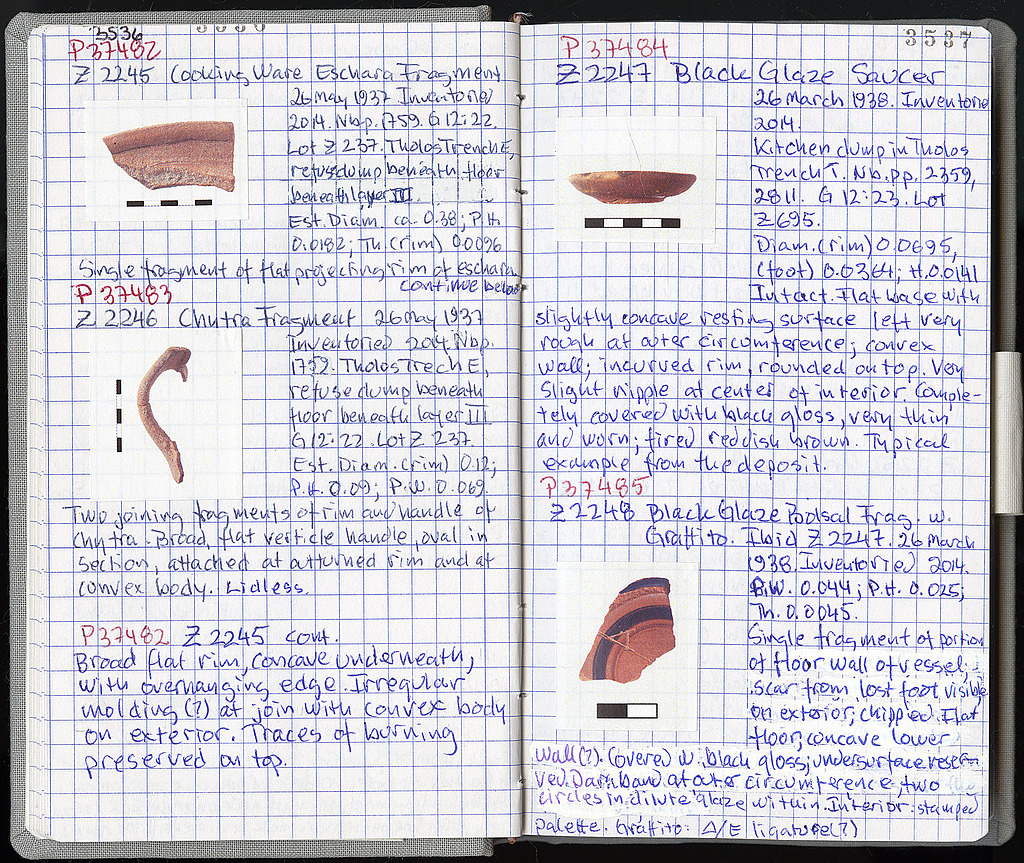 3536
P 37482
Z 2245 Cooking Ware Eschara Fragment
26 May 1937 Inventoried
2014. Nbp. 1759. G 12:22.
Lot Z 237. Tholos Trench E,
refuse dump beneath floor
beneath layer III.
Est. Diam. ca. 0.38; P.H.
0.0182; Th. (rim) 0.0096
Single fragment of flat projecting rim of eschara
continue below
P 37483
Z 2246 Chytra Fragment 26 May 1937
Inventoried 2014. Nbp.
1752. Tholos Trech E,
refuse dump beneath
floor beneath layer III
G 12:22. Lot Z 237.
Est. Diam. (rim) 0.12;
P.H. 0.09; P.W. 0.069.
Two joining fragments of rim and handle of
Chytra. Broad, flat verticle handle, oval in
section, attached at outturned rim and at
convex body. Lidless.
P37482 Z 2245 cont.
Broad flat rim, concave underneath,
with overhanging edge. Irregular
molding (?) at join with convex body
on exterior. Traces of burning
preserved on top.
3537
P 37484
Z 2247 Black Glaze Saucer
26 March 1938. Inventoried
2014.
Kitchen dump in Tholos
Trench T. Nb.pp. 2359,
2811. G 12:23. Lot
Z 695.
Diam. (rim) 0.0695,
(foot) 0.0364; H. 0.0141
Intact. Flat base with
slightly concave resting surface left very
rough at outer circumference; convex
wall; incurved rim, rounded on top. Very
slight nipple at center of interior. Comple-
tely covered with black gloss, very thin
and worn; fired reddish brown. Typical
example from the deposit.
P 37485
Z 2248 Black Glaze Bolsal Frag. w.
Graffito. Ibid Z 2247. 26 March
1938. Inventoried 2014.
P.W. 0.044; P.H. 0.025;
Th. 0.0045.
Single fragment of portion
of floor wall of vessel;
scar from lost foot visible
on exterior; chipped. Flat
floor, concave lower
wall (?). Covered w. black gloss; undersurface reser-
ved. Dark band at outer circumference, two
circles in dilute glaze within. Interior: stamped
palette. Graffito: Δ/E ligature (?)